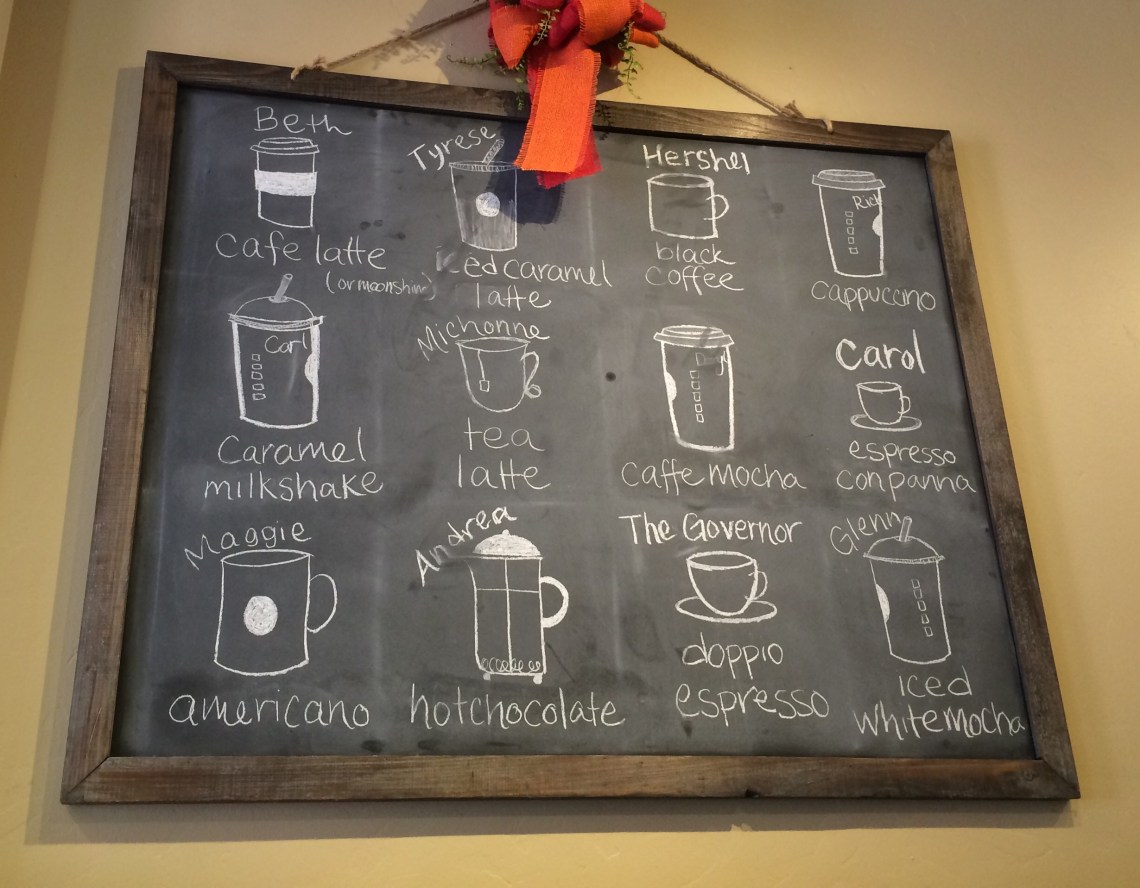 Beth
cafe latte
(or moonshine)
Tyrese
iced caramel
latte
Hershel
black
coffee
Rick
cappuccino
Carl
Caramel
milkshake
Michonne
tea
latte
caffe mocha
Carol
espresso
con panna
Maggie
americano
Andrea
hot chocolate
The Governor
doppio
espresso
Glenn
iced
white mocha